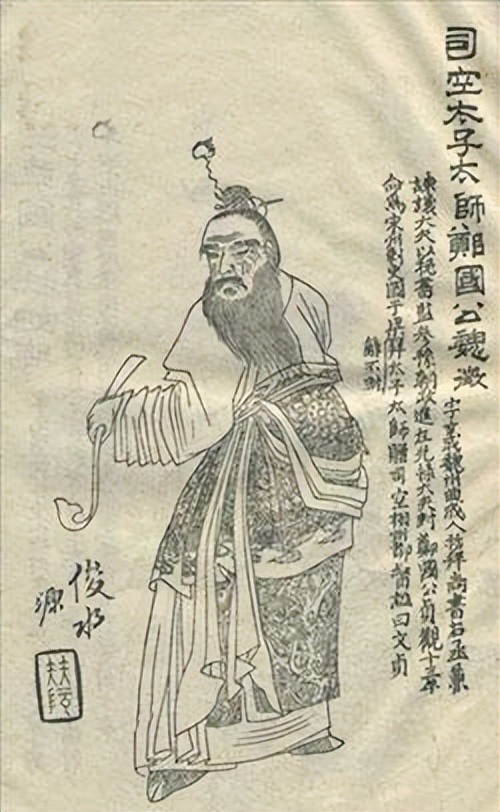 司空太子太師鄭國公魏徵
字玄成魏州曲成人初拜尚書右丞兼
諫議大夫以秘書監參豫朝政進左光祿大夫封鄭國公貞觀十七年
拜太子太師贈司空相州都督謚曰文貞
俊水
源